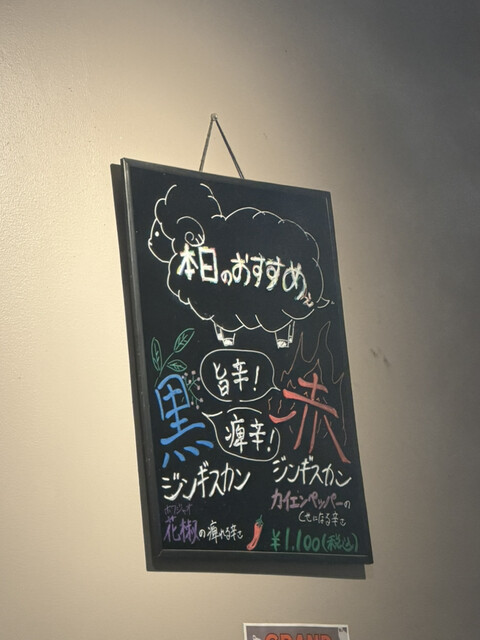 本日のおすすめ
旨辛!
痺辛!
黒
ジンギスカン
赤
ジンギスカン
ホワジャオ
花椒の痺れる辛さ
カイエンペッパーの
くせになる辛さ
¥1,100(税込)
GRAND